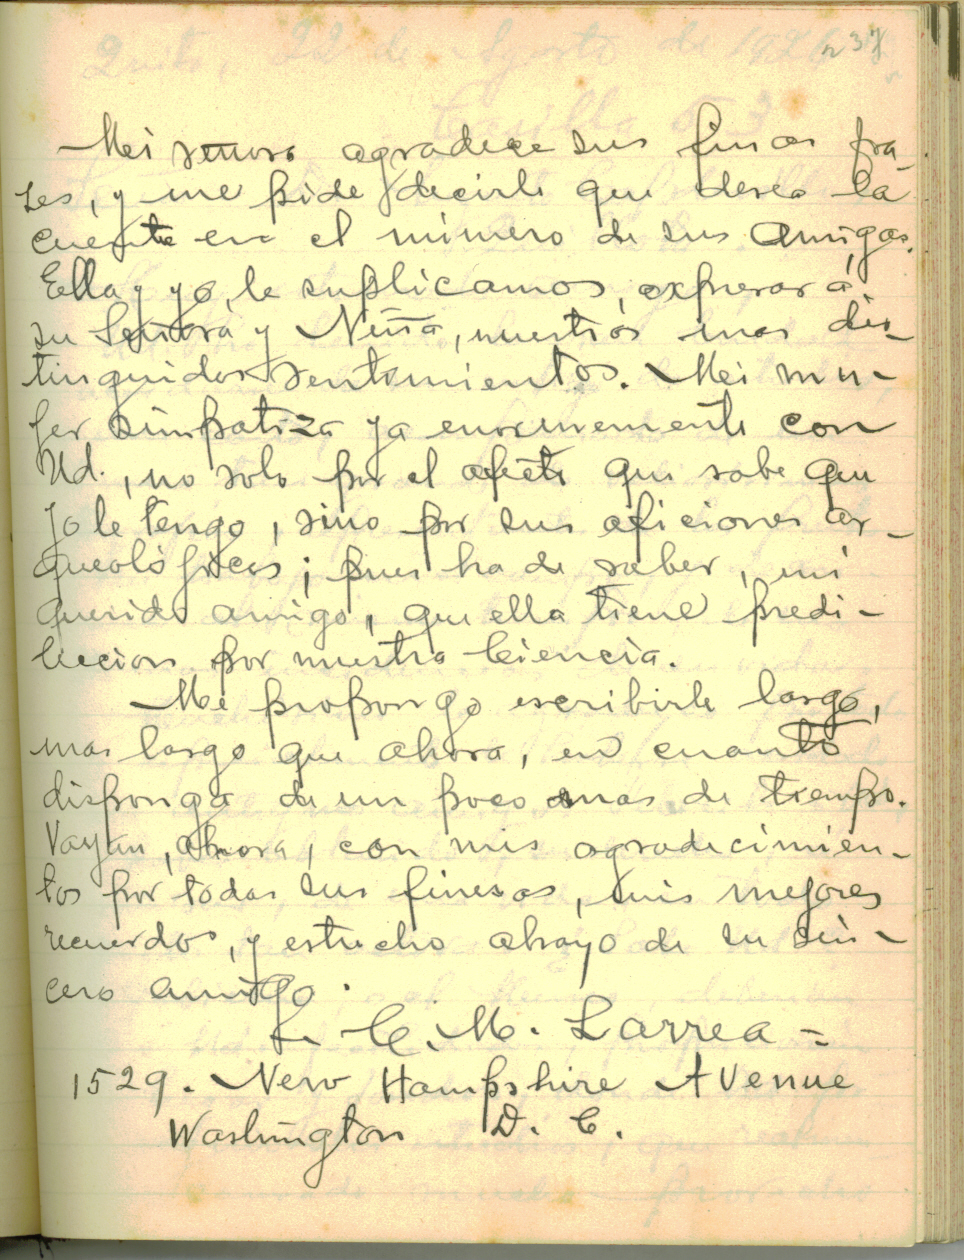 237
Mi señora agradece sus finas fra-
ses, y me pide decirle que desea la
cuente en el número de sus amigas.
Ella y yo, le suplicamos, expresar a
su Señora y Niña, nuestros mas dis-
tinguidos sentimientos. Mi mu-
jer simpatiza ya enormemente con
Ud., no solo por el afecto que sabe que
yo le tengo, sino por sus aficiones ar-
queológicas; pues ha de saber, mi
querido amigo, que ella tiene predi-
leccion por nuestra Ciencia.
Me propongo escribirle largo,
mas largo que ahora, en cuanto
disponga de un poco mas de tiempo.
Vayan, ahora, con mis agradecimien-
tos por todas sus finezas, mis mejores
recuerdos, y estrecho abrazo de su sin-
cero amigo.
f. C. M. Larrea =
1529. New Hampshire Avenue
Washington D. C.